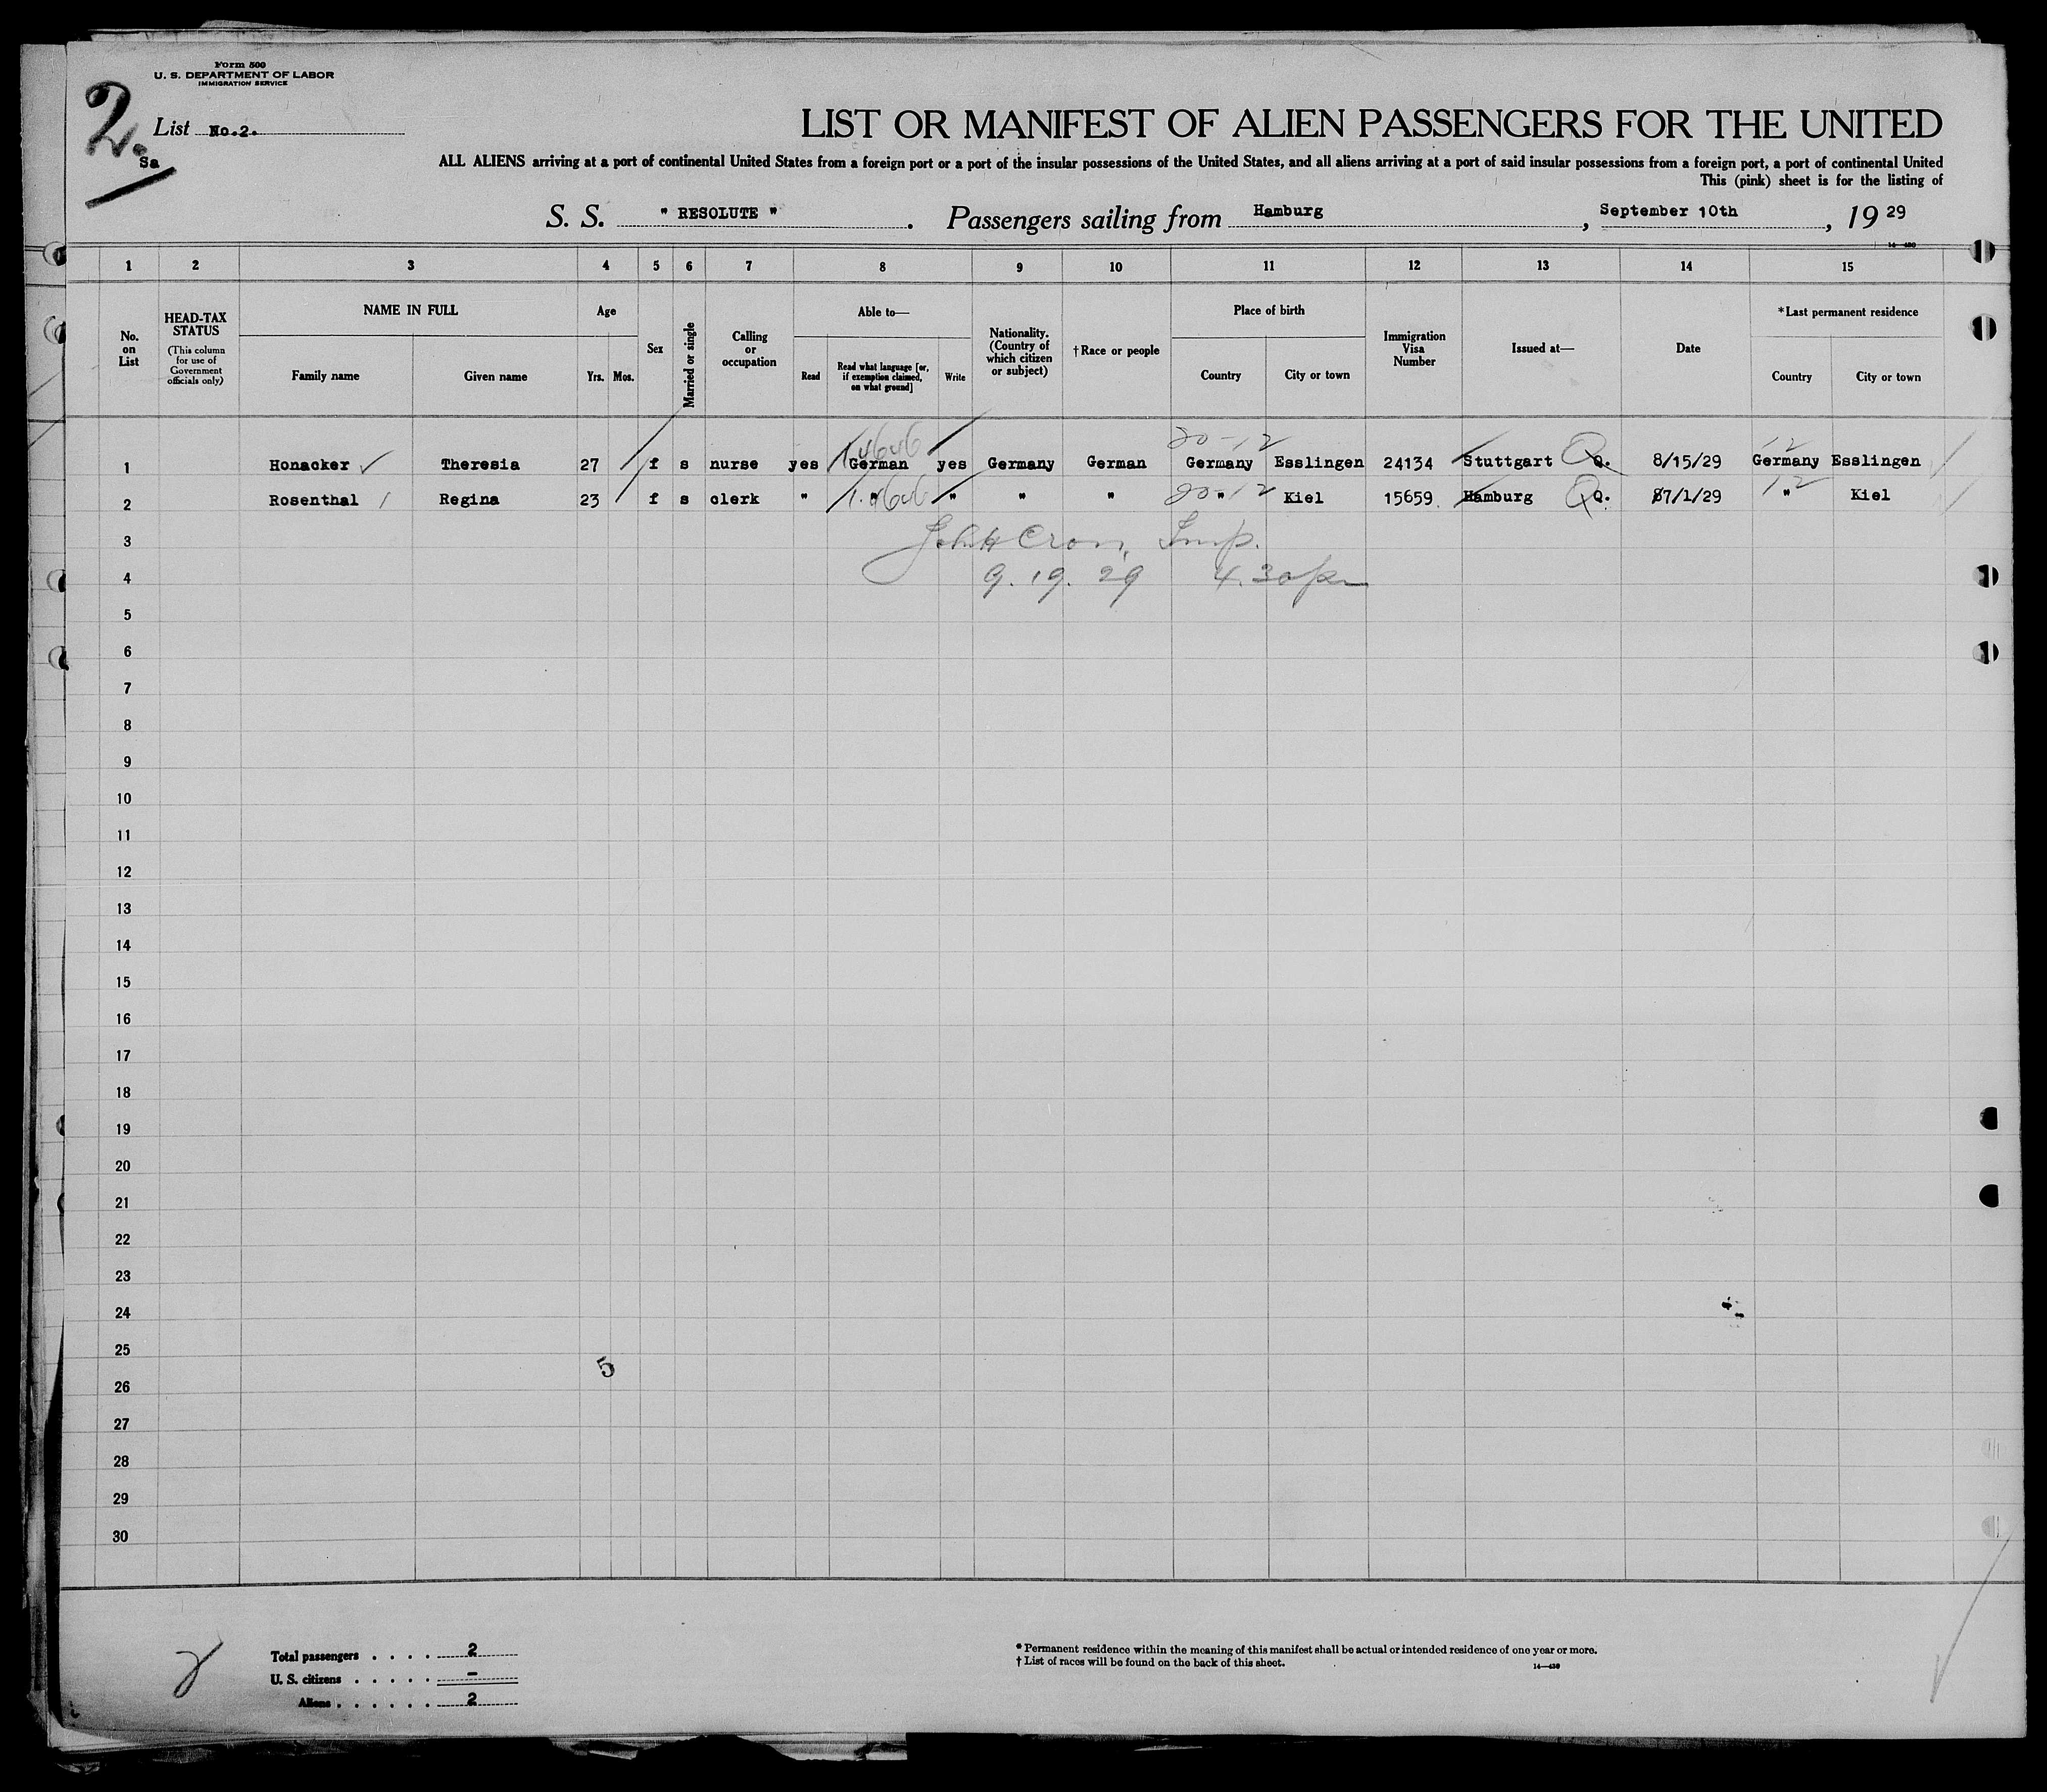 Form 500
U. S. DEPARTMENT OF LABOR
IMMIGRATION SERVICE
2.
List No.2.
Sa
LIST OR MANIFEST OF ALIEN PASSENGERS FOR THE UNITED
ALL ALIENS arriving at a port of continental United States from a foreign port or a port of the insular possessions of the United States, and all aliens arriving at a port of said insular possessions from a foreign port, a port of continental United
This (pink) sheet is for the listing of
S. S. " RESOLUTE " . Passengers sailing from Hamburg , September 10th , 19 29
1 2 3 4 5 6 7 8 9 10 11 12 13 14 15
No. on List
HEAD-TAX STATUS
(This column for use of Government officials only)
NAME IN FULL
Family name Given name
Age
Yrs. Mos.
Sex
Married or single
Calling or occupation
Able to—
Read
Read what language [or, if exemption claimed, on what ground]
Write
Nationality. (Country of which citizen or subject)
†Race or people
Place of birth
Country City or town
Immigration Visa Number
Issued at—
Date
*Last permanent residence
Country City or town
20-12 12
1 Honacker Theresia 27 f s nurse yes German yes Germany German Germany Esslingen 24134 Stuttgart Q. 8/15/29 Germany Esslingen
20-12 12
2 Rosenthal Regina 23 f s clerk " " " " " " Kiel 15659 Hamburg Q. 7/1/29 " Kiel
3 John H Cron, Insp.
4 9. 19. 29 4.30 pm
5
6
7
8
9
10
11
12
13
14
15
16
17
18
19
20
21
22
23
24
25
5
26
27
28
29
30
Total passengers . . . . 2
U. S. citizens . . . . . –
Aliens . . . . . . 2
* Permanent residence within the meaning of this manifest shall be actual or intended residence of one year or more.
† List of races will be found on the back of this sheet.
14—430